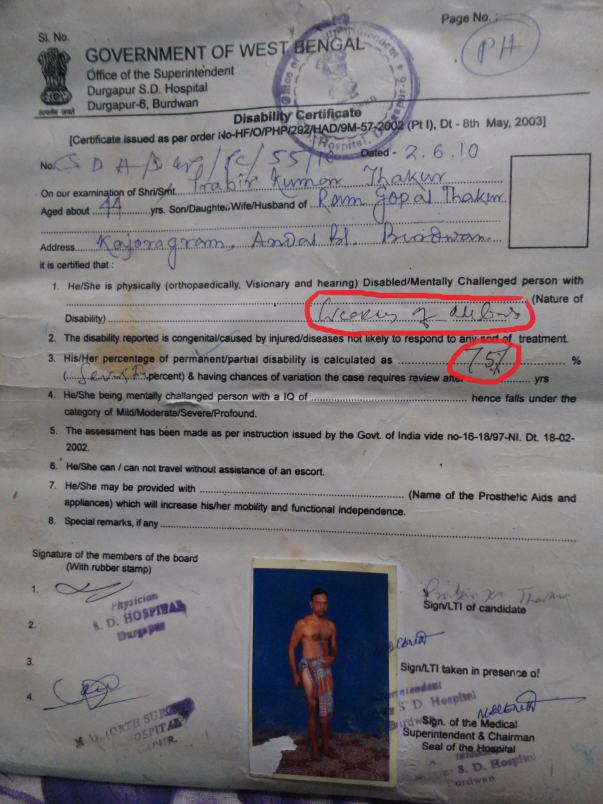 Page No. :
PH
Sl. No.
GOVERNMENT OF WEST BENGAL
Office of the Superintendent
Durgapur S.D. Hospital
Durgapur-6, Burdwan
Disability Certificate
[Certificate issued as per order No-HF/O/PHP/292/HAD/9M-57-2002 (Pt I), Dt - 8th May, 2003]
No. Dated - 2.6.10
On our examination of Shri/Smt. Kumar Thakur
Aged about 44 yrs. Son/Daughter/Wife/Husband of Ram Gopal Thakur
Address Kajoragram, Andal Burdwan
it is certified that :
1. He/She is physically (orthopaedically, Visionary and hearing) Disabled/Mentally Challenged person with
(Nature of
Disability) of
2. The disability reported is congenital/caused by injured/diseases not likely to respond to any sort of treatment.
3. His/Her percentage of permanent/partial disability is calculated as 75% %
( percent) & having chances of variation the case requires review after yrs
4. He/She being mentally challanged person with a IQ of hence falls under the
category of Mild/Moderate/Severe/Profound.
5. The assessment has been made as per instruction issued by the Govt. of India vide no-16-18/97-NI. Dt. 18-02-
2002.
6. He/She can / can not travel without assistance of an escort.
7. He/She may be provided with (Name of the Prosthetic Aids and
appliances) which will increase his/her mobility and functional independence.
8. Special remarks, if any
Signature of the members of the board
(With rubber stamp)
1.
Physician
S. D. HOSPITAL
Durgapur
2.
3.
4.
Thakur
Sign/LTI of candidate
Sign/LTI taken in presence of
S D Hospital
Burdwan
Sign. of the Medical
Superintendent & Chairman
Seal of the Hospital
S. D. Hospital
Burdwan